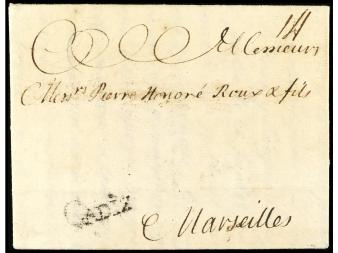 14
A Messieurs
Mess.rs Pierre Honoré Roux & fils
CADIZ
Marseilles